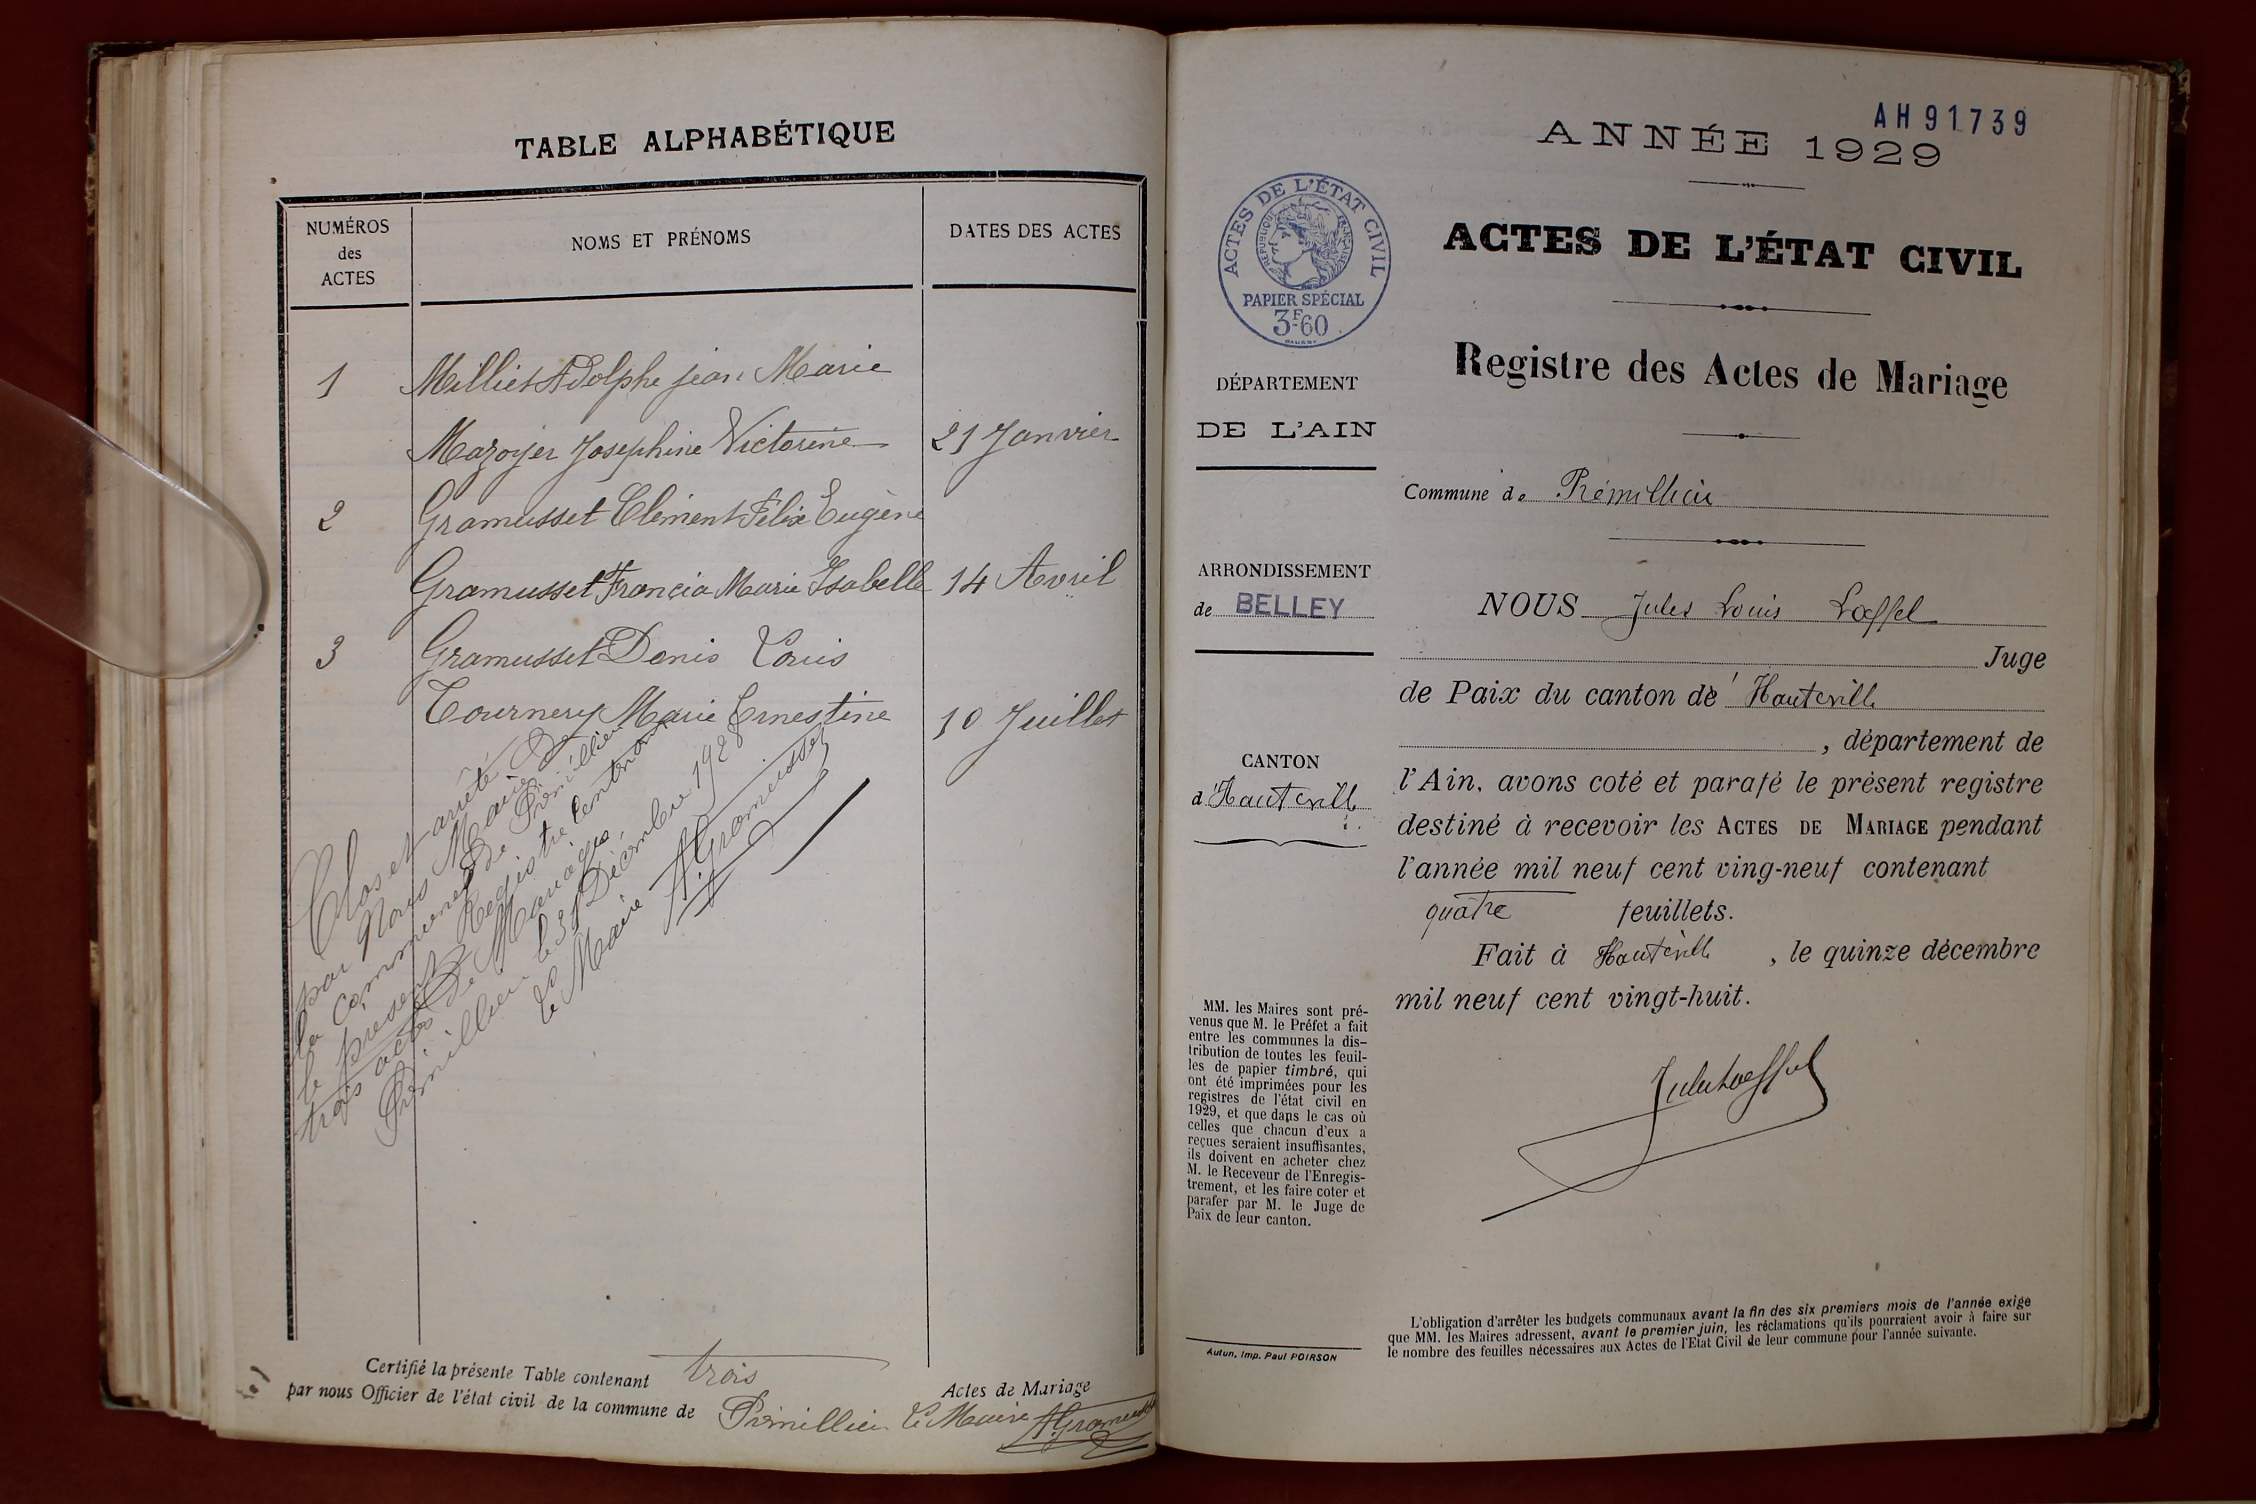 TABLE ALPHABÉTIQUE
NUMÉROS
des
ACTES
NOMS ET PRÉNOMS
DATES DES ACTES
1 Milliet Adolphe jean Marie
Mazoyer Josephine Victorine 21 Janvier
2 Gramusset Clément Félix Eugène
Gramusset Francia Marie Isabelle 14 Avril
3 Gramusset Denis Louis
Tournery Marie Ernestine 10 Juillet
Clos et arrêté
par Nous Maire de
la Commune de Prémillieu
le présent Registre Contenant
trois actes de Mariage
Prémillieu le 31 Décembre 1928
Le Maire
A. Gramusset
Certifié la présente Table contenant trois Actes de Mariage
par nous Officier de l'état civil de la commune de Prémillieu Le Maire A Gramusset
AH 91739
ANNÉE 1929
ACTES DE L'ÉTAT CIVIL
RÉPUBLIQUE FRANÇAISE
PAPIER SPÉCIAL
3F-60
ACTES DE L'ÉTAT CIVIL
Registre des Actes de Mariage
DÉPARTEMENT
DE L'AIN
ARRONDISSEMENT
de BELLEY
CANTON
d'Hauteville
MM. les Maires sont pré-
venus que M. le Préfet a fait
entre les communes la dis-
tribution de toutes les feuil-
les de papier timbré, qui
ont été imprimées pour les
registres de l'état civil en
1929, et que dans le cas où
celles que chacun d'eux a
reçues seraient insuffisantes,
ils doivent en acheter chez
M. le Receveur de l'Enregis-
trement, et les faire coter et
parafer par M. le Juge de
Paix de leur canton.
Autun, Imp. Paul POIRSON
Commune de Prémillieu
NOUS Jules Louis Loeffel
Juge
de Paix du canton de Hauteville
, département de
l'Ain, avons coté et parafé le présent registre
destiné à recevoir les ACTES DE MARIAGE pendant
l'année mil neuf cent ving-neuf contenant
quatre feuillets.
Fait à Hauteville , le quinze décembre
mil neuf cent vingt-huit.
Jules Loeffel
L'obligation d'arrêter les budgets communaux avant la fin des six premiers mois de l'année exige
que MM. les Maires adressent, avant le premier juin, les réclamations qu'ils pourraient avoir à faire sur
le nombre des feuilles nécessaires aux Actes de l'Etat Civil de leur commune pour l'année suivante.